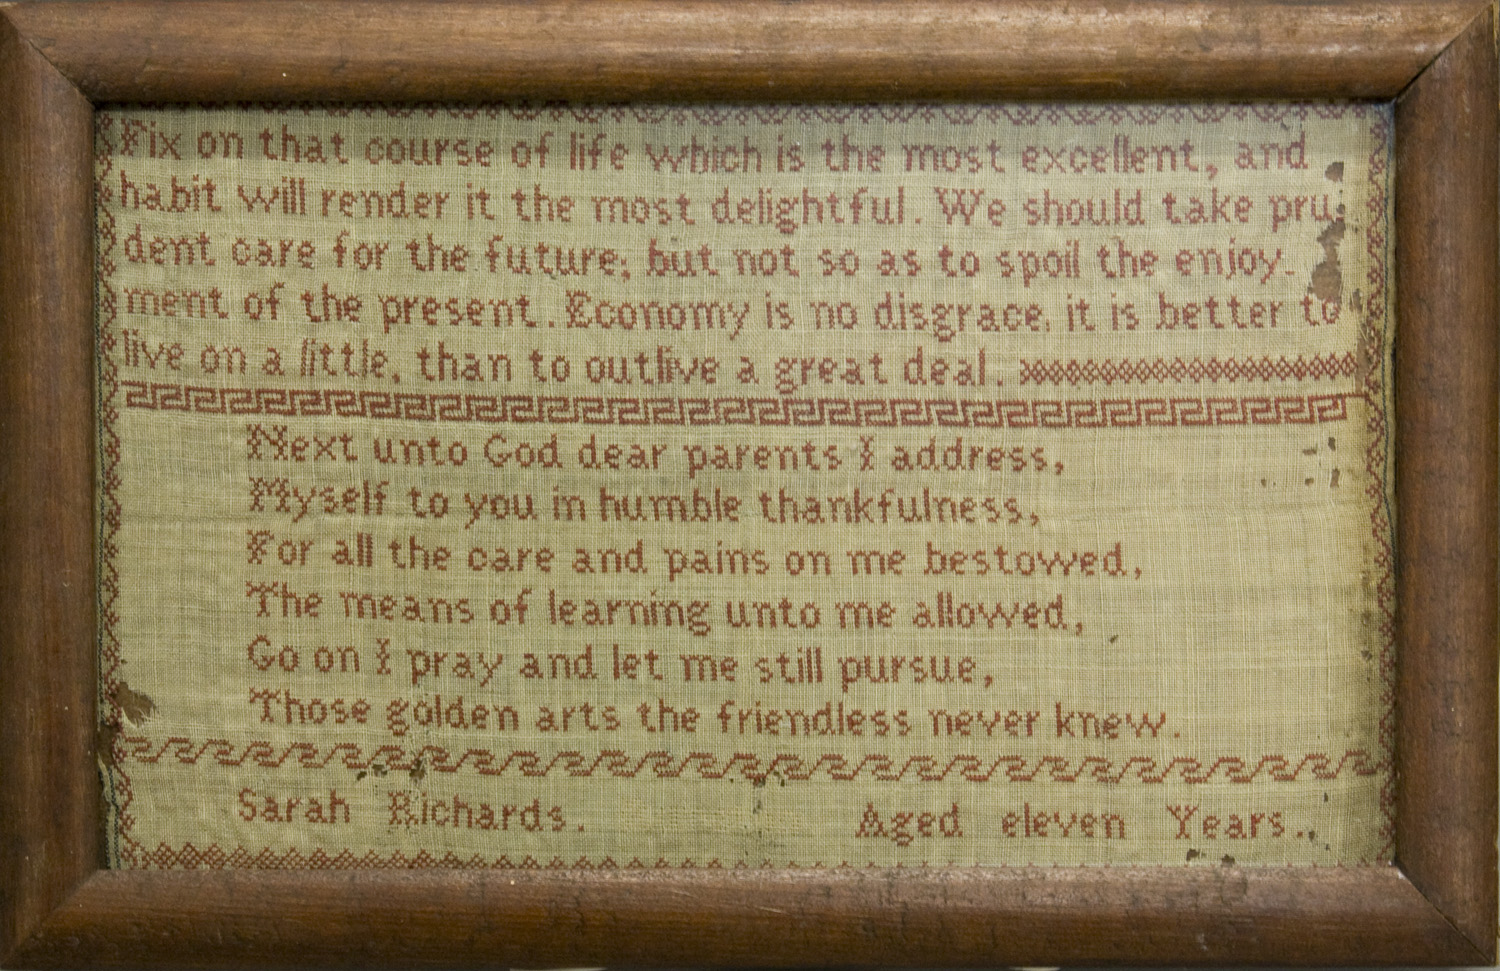 Fix on that course of life which is the most excellent, and
habit will render it the most delightful. We should take pru-
dent care for the future; but not so as to spoil the enjoy-
ment of the present. Economy is no disgrace, it is better to
live on a little, than to outlive a great deal.
Next unto God dear parents I address,
Myself to you in humble thankfulness,
For all the care and pains on me bestowed,
The means of learning unto me allowed,
Go on I pray and let me still pursue,
Those golden arts the friendless never knew.
Sarah Richards. Aged eleven Years.